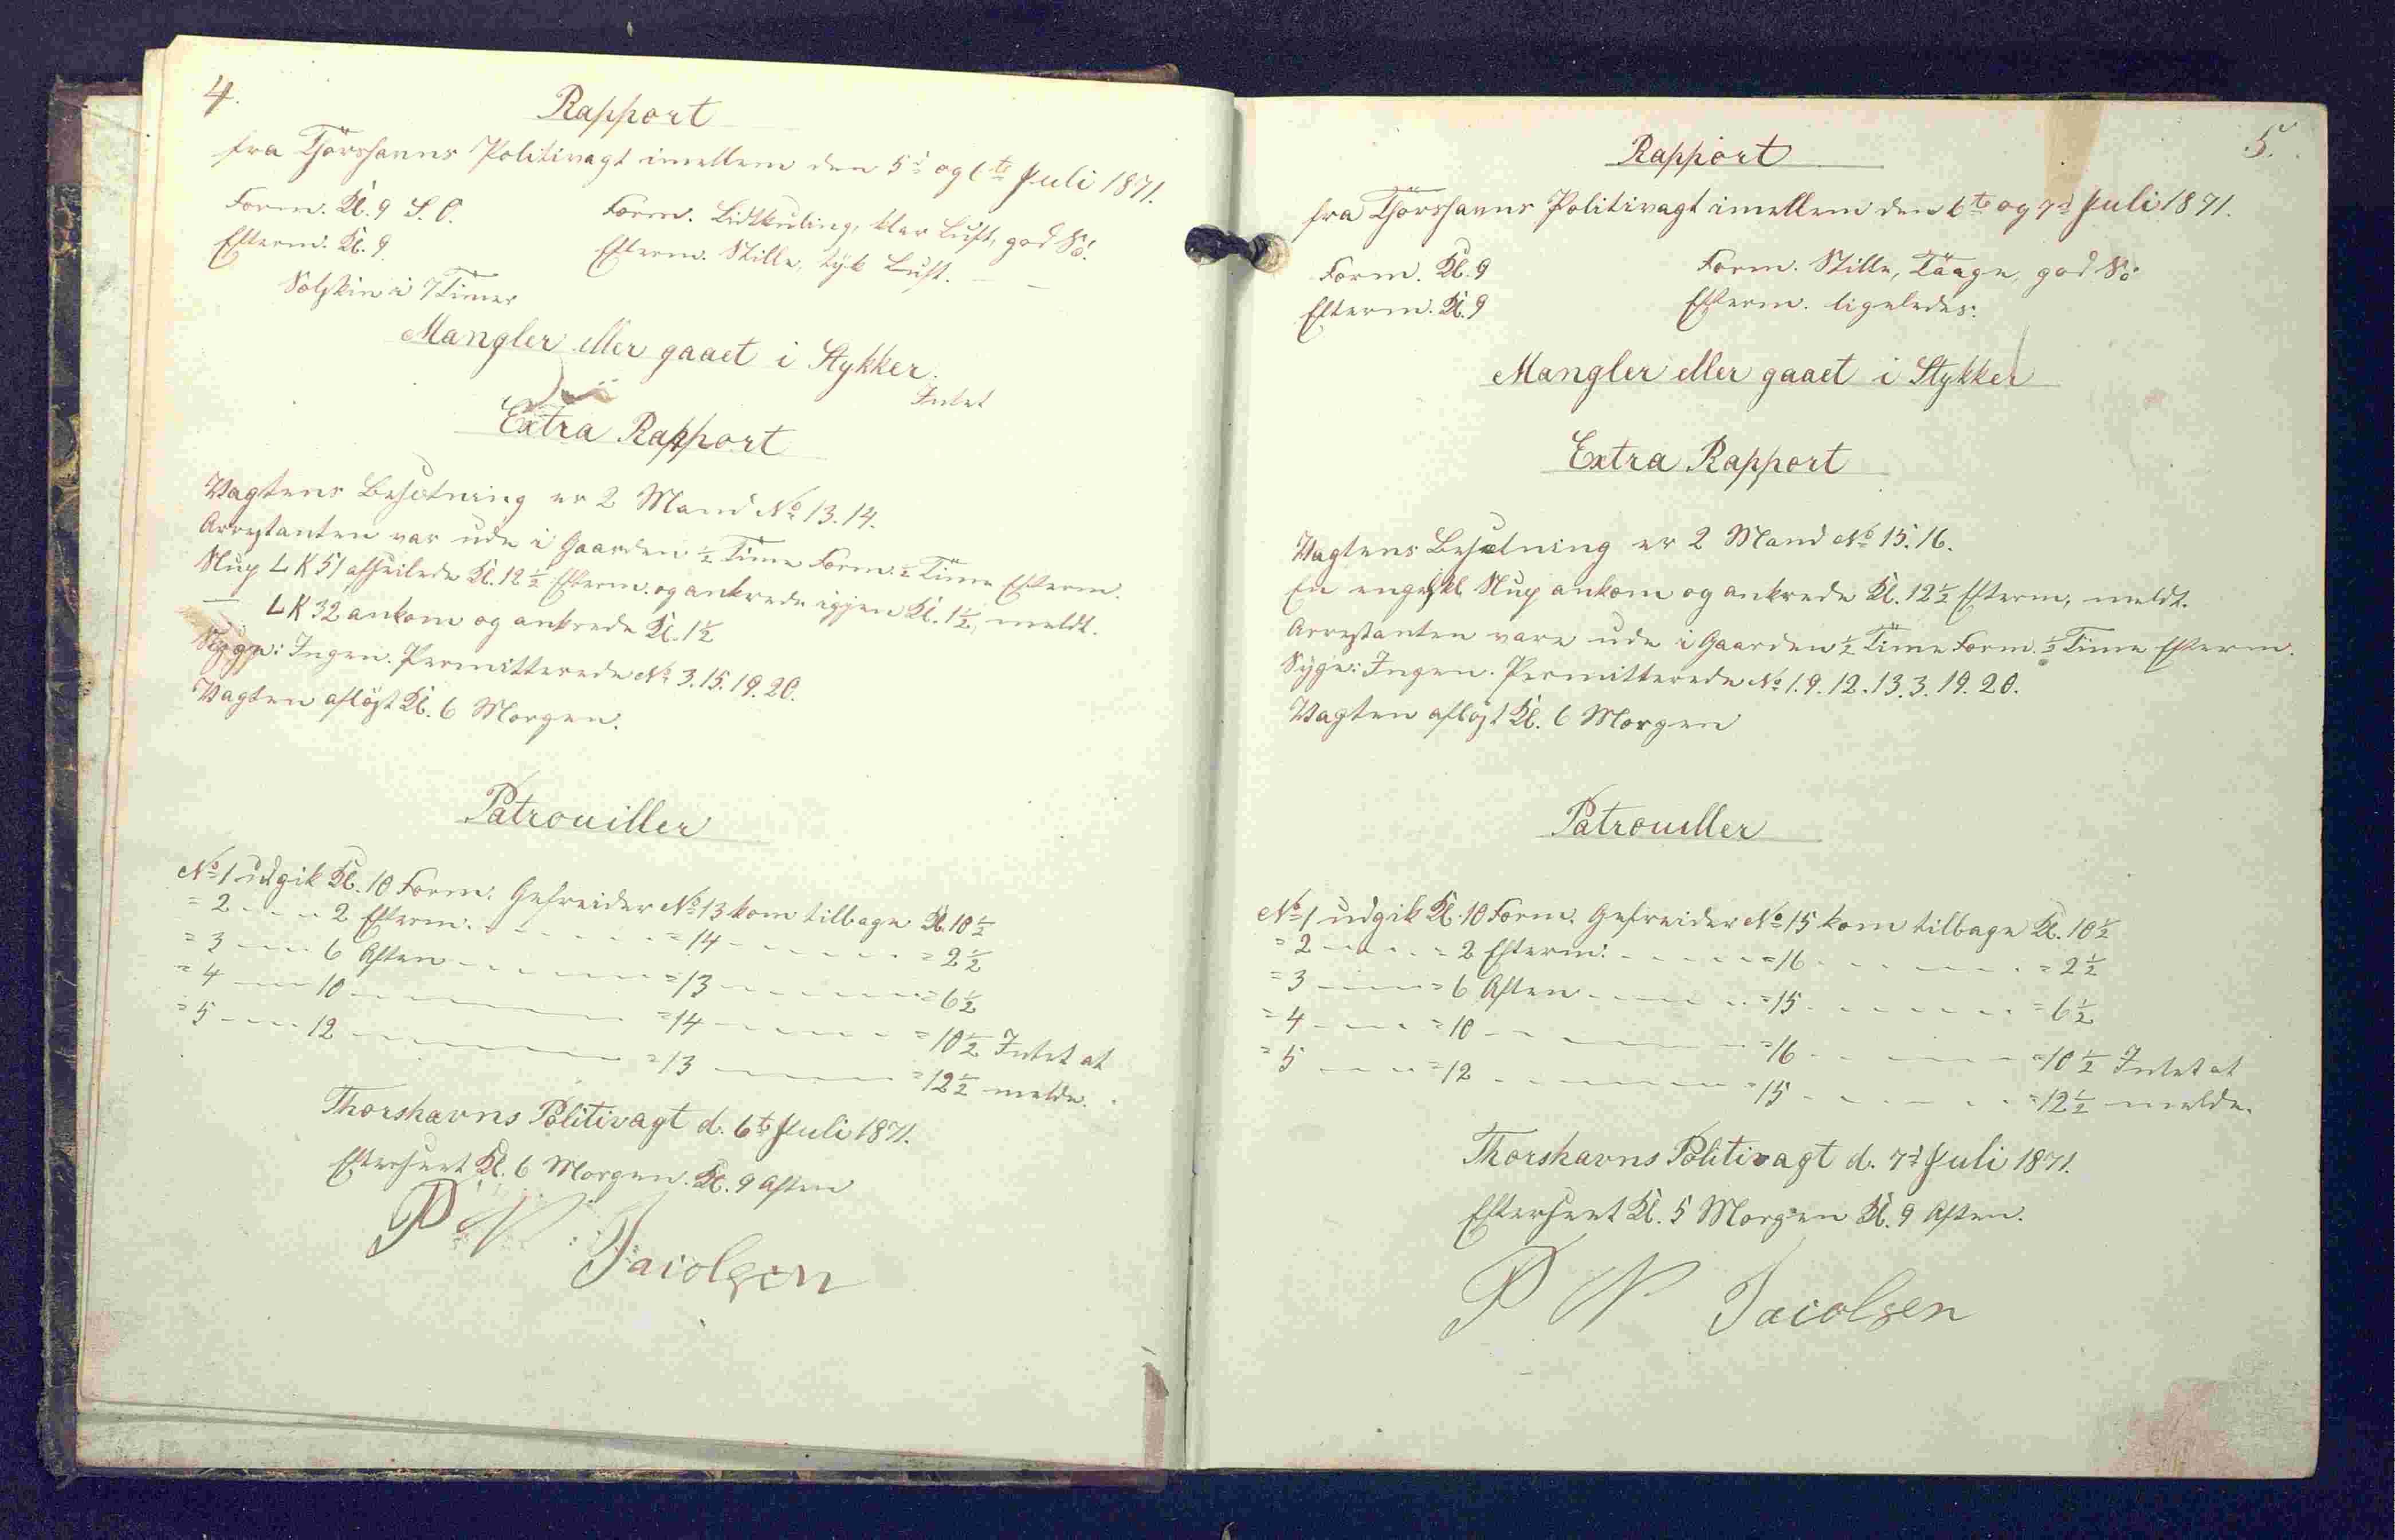 4.
Rapport
fra Thorshavns Politivagt imellem den 5d og 6te Juli 1871.
Form. Kl. 9 S.O. Form. Lidtkuling, klar Luft, god Sø.
Efterm. Kl. 9. Efterm. Stille, tÿk Luft.
Solskin i 7 Timer
Mangler eller gaaet i Stykker.
Intet
Extra Rapport
Vagtens Besætning er 2 Mand No 13. 14.
Arrestanten var ude i Gaarden ½ Time Form. ½ Time Efterm.
Slup LK 51 afseilede Kl. 12½ Efterm. og ankrede igjen Kl. 1½, meldt.
— LK 32 ankom og ankrede Kl. 1½
Syge: Ingen. Permitterede No 3. 15. 19. 20.
Vagten afløst Kl. 6 Morgen.
Patrouiller
No 1 udgik Kl. 10 Form. Gefreider No 13 kom tilbage Kl. 10½
= 2 - - - - 2 Efterm. - - - - - = 14 - - - - - = 2½
= 3 - - - - 6 Aften - - - - - = 13 - - - - - = 6½
= 4 - - - - 10 - - - - - = 14 - - - - - = 10½ Intet at
= 5 - - - - 12 - - - - - = 13 - - - - - = 12½ melde.
Thorshavns Politivagt d. 6te Juli 1871.
Efterseet Kl. 6 Morgen. Kl. 9 Aften
P N Jacobsen
5.
Rapport
fra Thorshavns Politivagt imellem den 6te og 7d Juli 1871.
Form. Kl. 9 Form. Stille, Taage, god Sø
Efterm. Kl. 9 Efterm. ligeledes.
Mangler eller gaaet i Stykker
Extra Rapport
Vagtens Besætning er 2 Mand No 15. 16.
En engelsk Slup ankom og ankrede Kl. 12½ Efterm, meldt.
Arrestanten vare ude i Gaarden ½ Time Form. ½ Time Efterm.
Syge: Ingen. Permitterede No 1. 9. 12. 13. 3. 19. 20.
Vagten afløst Kl. 6 Morgen
Patrouiller
No 1 udgik Kl. 10 Form. Gefreider No 15 kom tilbage Kl. 10½
= 2 - - - - = 2 Efterm. - - - - - = 16 - - - - - = 2½
= 3 - - - - = 6 Aften - - - - - = 15 - - - - - = 6½
= 4 - - - - = 10 - - - - - = 16 - - - - - = 10½ Intet at
= 5 - - - - = 12 - - - - - = 15 - - - - - = 12½ melde.
Thorshavns Politivagt d. 7d Juli 1871.
Efterseet Kl. 5 Morgen Kl. 9 Aften.
P N Jacobsen